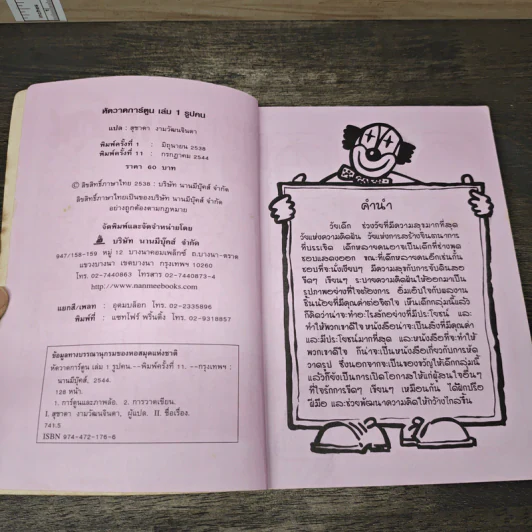 หัดวาดการ์ตูน เล่ม 1 รูปคน
แปล : สุชาดา งามวัฒนจินดา
พิมพ์ครั้งที่ 1 : มิถุนายน 2538
พิมพ์ครั้งที่ 11 : กรกฎาคม 2544
ราคา 60 บาท
© ลิขสิทธิ์ภาษาไทย 2538 : บริษัท นานมีบุ๊คส์ จำกัด
ลิขสิทธิ์ภาษาไทยเป็นของบริษัท นานมีบุ๊คส์ จำกัด
อย่างถูกต้องตามกฎหมาย
จัดพิมพ์และจัดจำหน่ายโดย
บริษัท นานมีบุ๊คส์ จำกัด
947/158-159 หมู่ 12 บางนาคอมเพล็กซ์ ถ.บางนา-ตราด
แขวงบางนา เขตบางนา กรุงเทพฯ 10260
โทร. 02-7440863 โทรสาร 02-7440873-4
http://www.nanmeebooks.com
แยกสี/เพลท : อุดมบล็อก โทร. 02-2335896
พิมพ์ที่ : แซทโฟร์ พริ้นติ้ง โทร. 02-9318857
ข้อมูลทางบรรณานุกรมของหอสมุดแห่งชาติ
หัดวาดการ์ตูน เล่ม 1 รูปคน.--พิมพ์ครั้งที่ 11.--กรุงเทพฯ :
นานมีบุ๊คส์, 2544.
128 หน้า.
1. การ์ตูนและภาพล้อ. 2. การวาดเขียน.
I. สุชาดา งามวัฒนจินดา, ผู้แปล. II. ชื่อเรื่อง.
741.5
ISBN 974-472-176-6
คำนำ
วัยเด็ก ช่วงวัยที่มีความสุขมากที่สุด
วัยแห่งความคิดฝัน วัยแห่งการสร้างจินตนาการ
ที่บรรเจิด เด็กหลายคนอาจเป็นเด็กที่ช่างพูด
ชอบแสดงออก ขณะที่เด็กหลายคนอีกเช่นกัน
ชอบที่จะนั่งเงียบๆ มีความสุขกับการจับดินสอ
ขีดๆ เขียนๆ ระบายความคิดฝันให้ออกมาเป็น
รูปภาพอย่างที่ใจต้องการ อิ่มเอิบใจกับผลงาน
ชิ้นน้อยที่มีคุณค่าต่อจิตใจ เห็นเด็กกลุ่มนี้แล้ว
ก็คิดว่าน่าจะทำอะไรสักอย่างที่มีประโยชน์ และ
ทำให้พวกเขาดีใจ หนังสือน่าจะเป็นสิ่งที่มีคุณค่า
และมีประโยชน์มากที่สุด และหนังสือที่จะทำให้
พวกเขาดีใจ ก็น่าจะเป็นหนังสือเกี่ยวกับการหัด
วาดรูป ซึ่งนอกจากจะเป็นของขวัญให้เด็กกลุ่มนี้
แล้วก็ยังเป็นการเปิดโอกาสให้แก่ผู้สนใจอื่นๆ
ที่ใจรักการขีดๆ เขียนๆ เหมือนกัน ได้ฝึกปรือ
ฝีมือ และช่วยพัฒนาความคิดให้กว้างไกลขึ้น